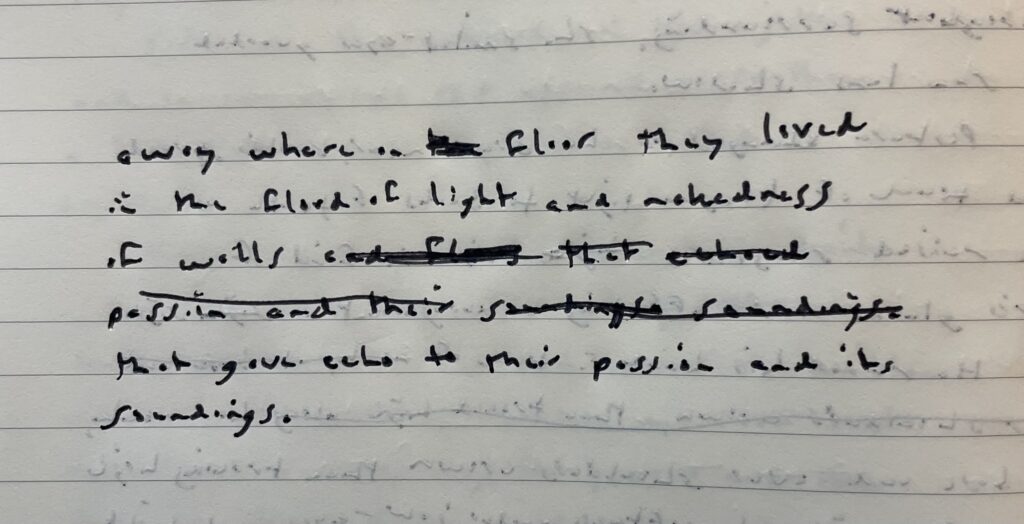 away where on floor they loved
in the flood of light and nakedness
of walls and that echoed
passion and their soundings.
that gave echo to their passion and its
soundings.